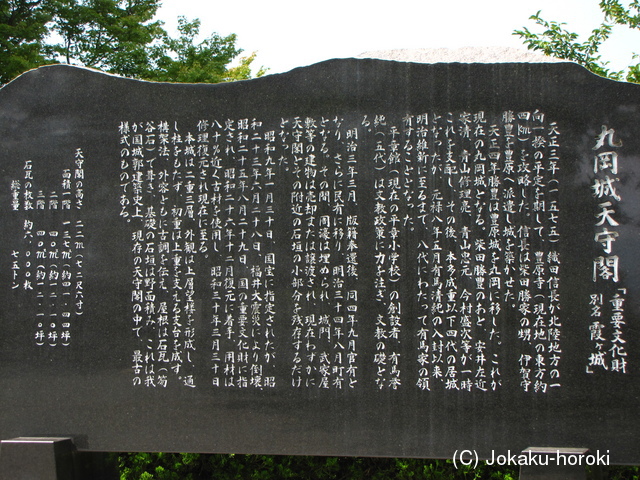 丸岡城天守閣
「重要文化財
別名 霞ヶ城」
天正三年(一五七五)織田信長が北陸地方の一
向一揆の平定を期して、豊原寺(現在地の東方約
四㎞)を攻略した。信長は柴田勝家の甥、伊賀守
勝豊を豊原へ派遣し城を築かせた。
天正四年勝豊は豊原城を丸岡に移した。これが
現在の丸岡城である。柴田勝豊のあと、安井左近
家清、青山修理亮、青山忠元、今村盛次等が一時
これを支配し、その後、本多成重以下四代の居城
となったが、元禄八年五月有馬清純の入封以来、
明治維新に至るまで、八代にわたって有馬家の領
有するところとなった。
平章館(現在の平章小学校)の創設者、有馬誉
純(五代)は文教政策に力を注ぎ、文教の礎とな
る。
明治三年三月、版籍奉還後、同四年九月官有と
なり、さらに民有に移り、明治三十四年八月町有
となる。その間、周濠は埋められ、城門、武家屋
敷等の建物は売却または譲渡され、現在わずかに
天守閣とその附近の石垣の小部分を残存するだけ
となった。
昭和九年一月三十日、国宝に指定されたが、昭
和二十三年六月二十八日、福井大震災により倒壊、
昭和二十五年八月二十九日、国の重要文化財に指
定され、昭和二十六年十二月復元に着手、用材は
八十%近く古材を使用し、昭和三十年三月三十日
修理復元され現在に至る。
本城は二重三層、外観は上層望楼を形成し、通
し柱をもたず、初重は上重を支える支台を成す。
構架法、外容ともに古調を伝え、屋根は石瓦(笏
谷石)で葺き、基礎の石垣は野面積み、これは我
が国城郭建築史上、現存の天守閣の中で、最古の
様式のものである。
天守閣の高さ 二二m(七二尺六寸)
面積一階 一三七㎡(約四一・四四坪)
二階 四〇㎡(約一二・一〇坪)
三階 四〇㎡(約一二・一〇坪)
石瓦の枚数 約六、〇〇〇枚
総重量 七五トン
(C) Jokaku-horoki